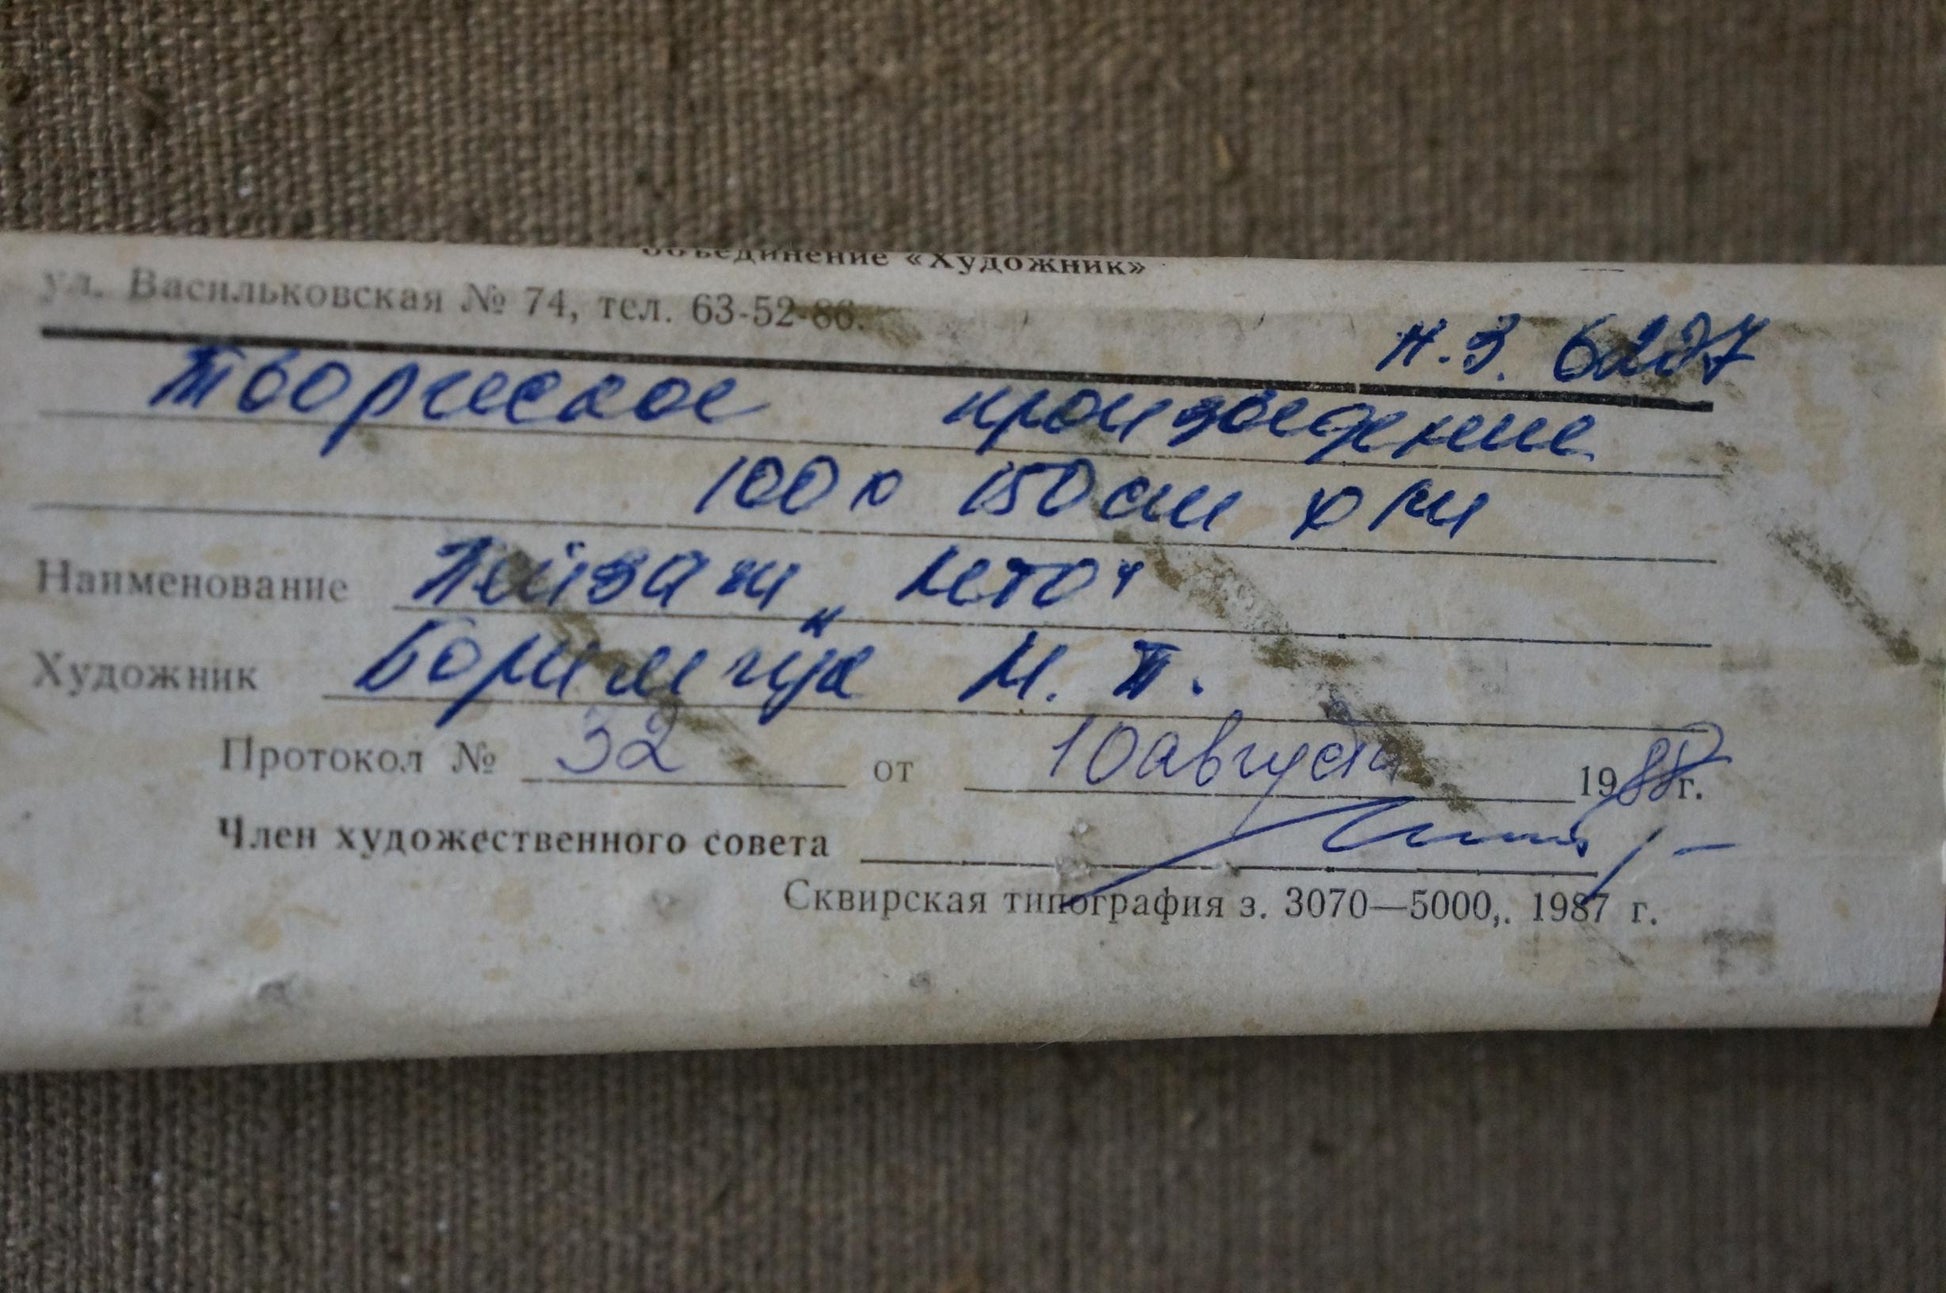 объединение «Художник»
ул. Васильковская № 74, тел. 63-52-86.
н.з. 6277
Творческое произведение
100 х 150 см х м
Наименование Пейзаж „Лето“
Художник М. П.
Протокол № 32 от 10 августа 1988 г.
Член художественного совета
Сквирская типография з. 3070—5000,. 1987 г.